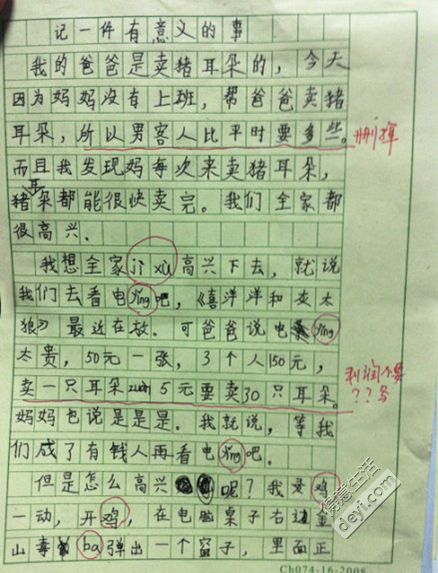 记一件有意义的事
我的爸爸是卖猪耳朵的，今天
因为妈妈没有上班，帮爸爸卖猪
耳朵，所以男客人比平时要多些。
而且我发现妈每次来卖猪耳朵，
猪耳朵都能很快卖完。我们全家都
很高兴.
我想全家jì xù高兴下去，就说
我们去看电yǐng吧，《喜洋洋和灰太
狼》最近在放.可爸爸说电yǐng
太贵，50元一张，3个人150元，
卖一只耳朵zuàn5元要卖30只耳朵。
妈妈也说是是是.我就说，等我
们成了有钱人再看电yǐng吧.
但是怎么高兴呢？我灵鸡
一动，开鸡，在电脑桌子右边
山毒ba弹出一个窗子，里面正
删掉
利润不要
？？务
得意生活
deyi.com
Ch074-16-2008